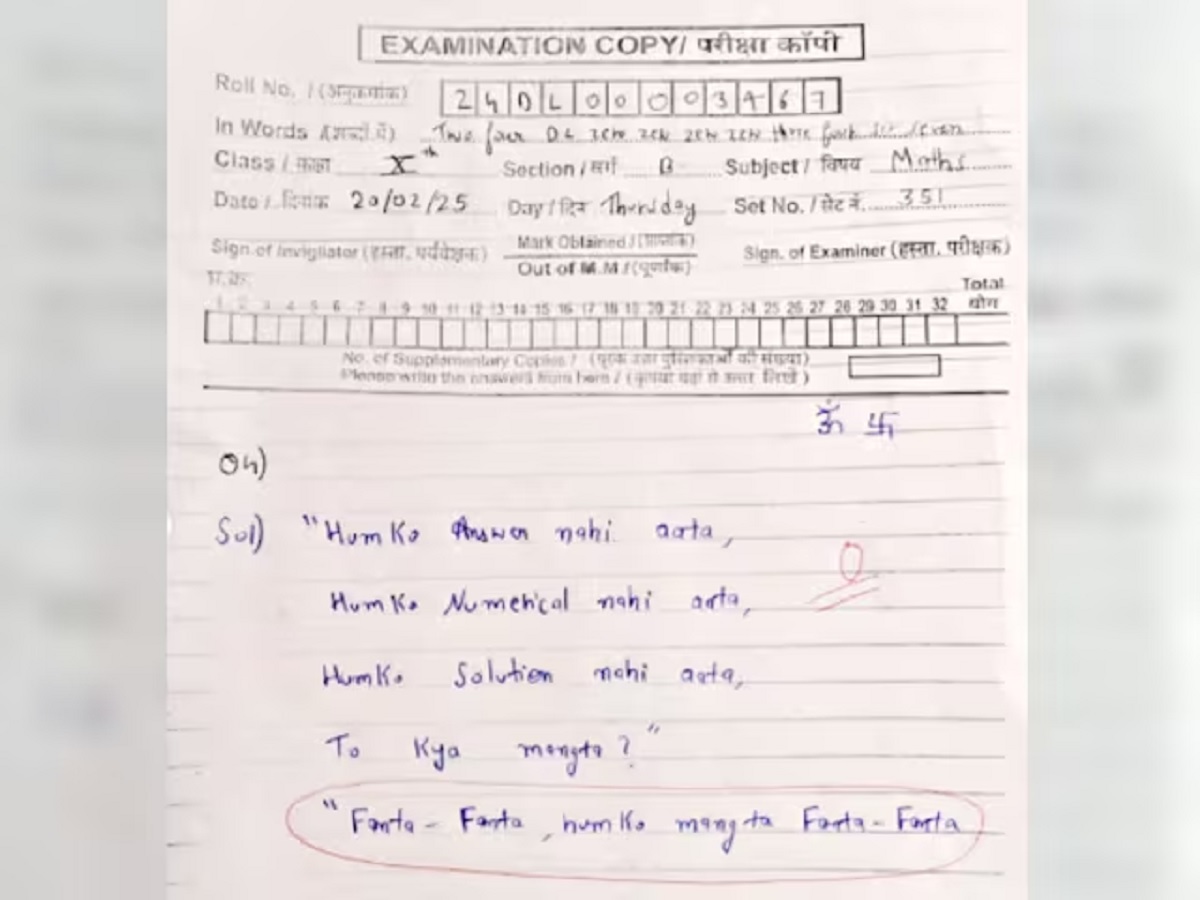 EXAMINATION COPY/ परीक्षा कॉपी
Roll No. / (अनुक्रमांक) 24DL00003467
In Words /(शब्दों में) Two four DL zero zero zero zero three four six seven
Class / कक्षा Xth Section / वर्ग B Subject / विषय Maths
Date / दिनांक 20/02/25 Day / दिन Thursday Set No. / सेट नं. 351
Sign.of Invigliator (हस्ता. पर्यवेक्षक) Mark Obtained / (प्राप्तांक) Sign. of Examiner (हस्ता. परीक्षक)
Out of M.M / (पूर्णांक)
प्र.क्र.
1 2 3 4 5 6 7 8 9 10 11 12 13 14 15 16 17 18 19 20 21 22 23 24 25 26 27 28 29 30 31 32 Total योग
No. of Supplementary Copies / (पूरक उत्तर पुस्तिकाओं की संख्या)
Please write the answers from here / (कृपया यहां से उत्तर लिखें )
ॐ 卐
04)
Sol) "Humko Answer nahi aata,
0
Humko Numerical nahi aata,
Humko Solution nahi aata,
To Kya mangta ? "
" Fanta - Fanta , humko mangta Fanta - Fanta